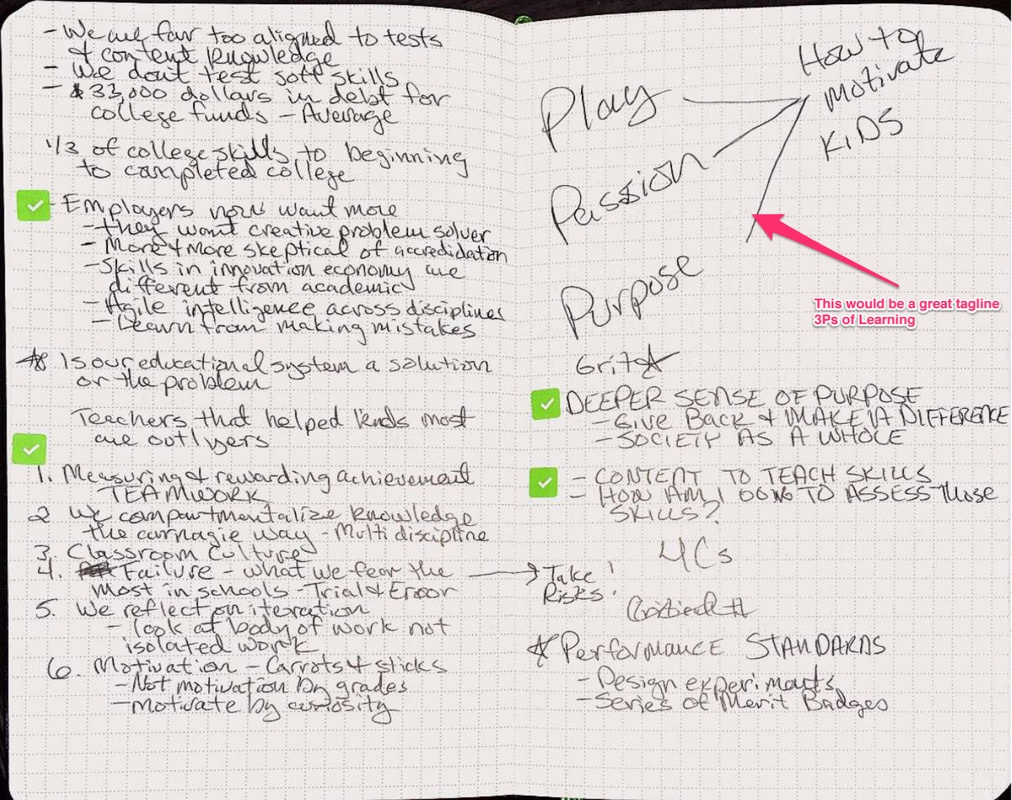 - We are far too aligned to tests
& content knowledge
- We dont test soft skills
- $33,000 dollars in debt for
college funds - Average
1/3 of college skills to beginning
to completed college
- Employers now want more
- they want creative problem solver
- More & more skeptical of accredidation
- Skills in innovation economy are
different from academic
- Agile intelligence across disciplines
- Learn from making mistakes
* Is our educational system a solution
or the problem
Teachers that helped kids most
are outlyers
1. Measuring & rewarding achievement
TEAMWORK
2 We compartmentalize knowledge
the carnagie way - Multi discipline
3. Classroom Culture
4. Failure - what we fear the
most in schools - Trial & Error
5. We reflect on iteration
- look at body of work not
isolated work
6. Motivation - Carrots & sticks
- Not motivation by grades
- motivate by curiosity
Play
Passion
Purpose
How to
motivate
KIDS
This would be a great tagline
3Ps of Learning
Grit
DEEPER SENSE OF PURPOSE
- GIVE BACK & MAKE A DIFFERENCE
- SOCIETY AS A WHOLE
- CONTENT TO TEACH SKILLS
- HOW AM I GOING TO ASSESS those
SKILLS?
4Cs
Take !
Risks!
* Performance STANDARDS
- Design experiments
- Series of Merit Badges